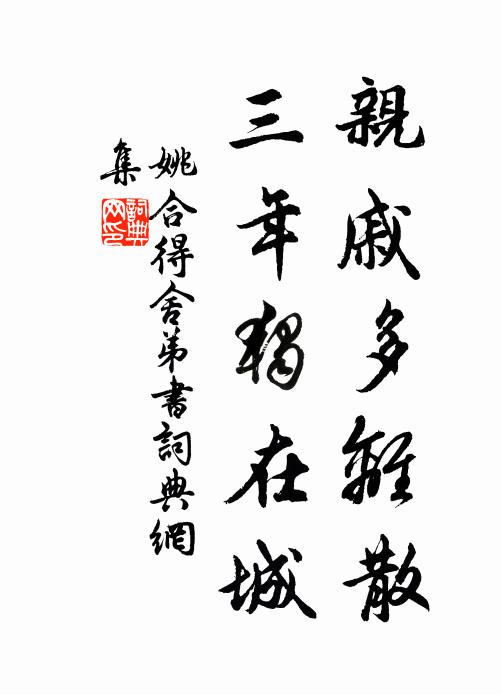 親戚多離散
三年獨在城
姚合得舍弟書詞典網
集
詞典
网印